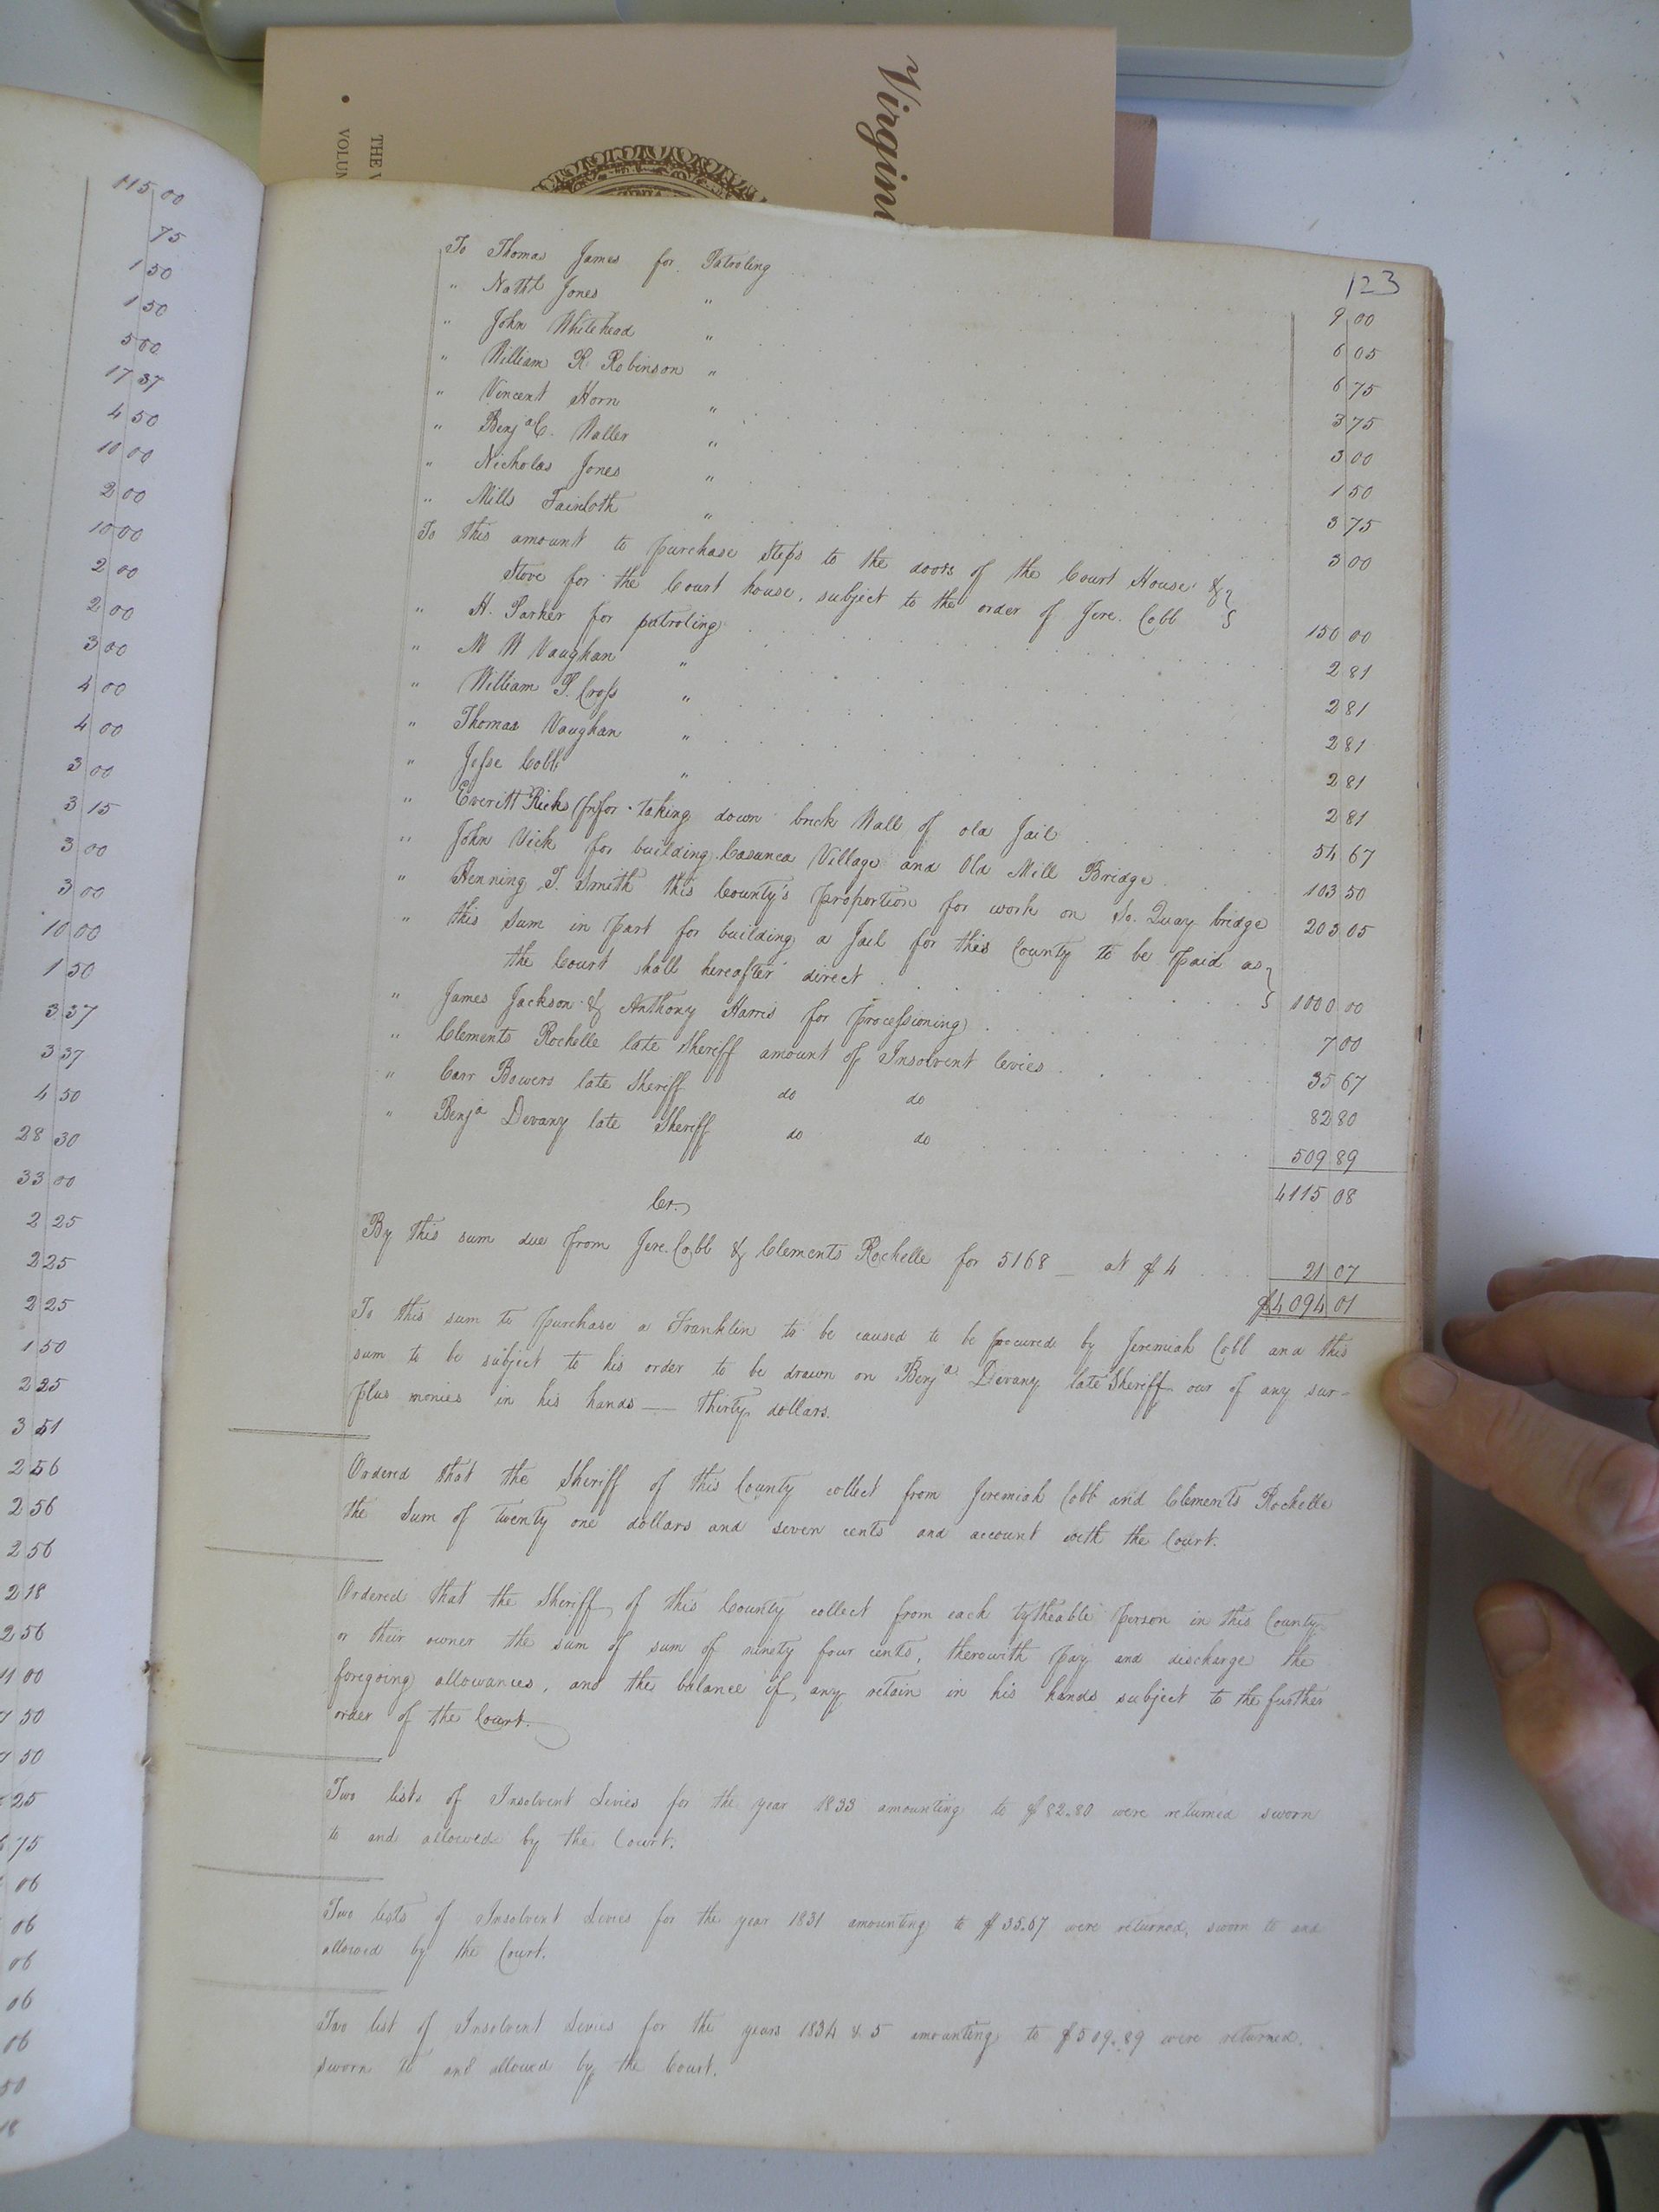 Virgin
THE V
VOLUM
115 00
75
1 50
1 50
5 00
17 37
4 50
10 00
2 00
10 00
2 00
2 00
3 00
4 00
4 00
3 00
3 15
3 00
3 00
10 00
1 50
3 37
3 37
4 50
28 30
33 00
2 25
2 25
2 25
1 50
2 25
3 51
2 56
2 56
2 56
2 18
2 56
00
50
50
25
75
06
06
06
06
06
50
18
123
To Thomas James for Patroling 9 00
" Nathl Jones " 6 05
" John Whitehead " 6 75
" William R. Robinson " 3 75
" Vincent Horn " 3 00
" Benja C. Waller " 1 50
" Nicholas Jones " 3 75
" Mills Faircloth " 3 00
To this amount to purchase Steps to the doors of the Court House &
Stove for the Court house, subject to the order of Jere. Cobb 150 00
" H. Parker for patroling 2 81
" M W Vaughan " 2 81
" William P. Cross " 2 81
" Thomas Vaughan " 2 81
" Jesse Cobb " 2 81
" Everitt Ricks for taking down brick Wall of old Jail 54 67
" John Vick for building Village and Old Mill Bridge 103 50
" Henning T. Smith this County's proportion for work on So. Quay bridge 203 05
" this Sum in part for building a Jail for this County to be paid as
the Court shall hereafter direct 1000 00
" James Jackson & Anthony Harris for processioning 7 00
" Clements Rochelle late Sheriff amount of Insolvent levies 35 67
" Carr Bowers late Sheriff do do 82 80
" Benja Devany late Sheriff do do 509 89
4115 08
Cr.
By this sum due from Jere. Cobb & Clements Rochelle for 5168 — at $4 21 07
$4094 01
To this sum to purchase a Franklin to be caused to be procured by Jeremiah Cobb and this
sum to be subject to his order to be drawn on Benja Devany late Sheriff our of any sur-
plus monies in his hands — thirty dollars.
Ordered that the Sheriff of this County collect from Jeremiah Cobb and Clements Rochelle
the Sum of twenty one dollars and seven cents and account with the Court.
Ordered that the Sheriff of this County collect from each tytheable person in this County
or their owner the sum of sum of ninety four cents, therewith pay and discharge the
foregoing allowances, and the balance if any retain in his hands subject to the further
order of the Court.
Two lists of Insolvent Levies for the year 1833 amounting to $82.80 were returned sworn
to and allowed by the Court.
Two lists of Insolvent Levies for the year 1831 amounting to $35.67 were returned, sworn to and
allowed by the Court.
Two list of Insolvent Levies for the years 1834 & 5 amounting to $509.89 were returned.
sworn to and allowed by the Court.